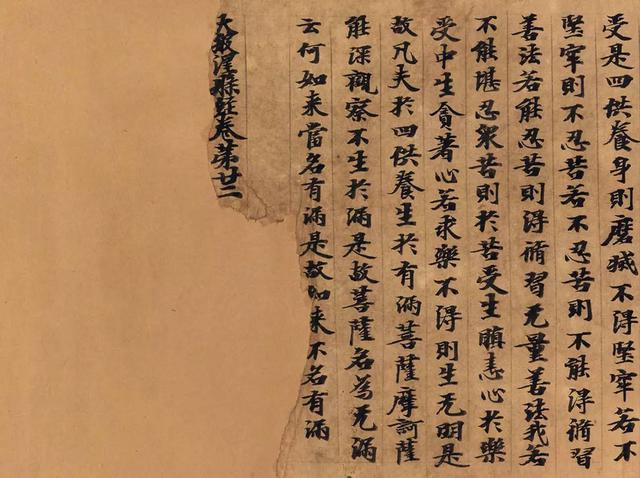 受是四供養身則磨滅不得堅牢若不
堅牢則不忍苦若不忍苦則不能淂脩習
善法若能忍苦則淂脩習无量善法我若
不能堪忍衆苦則於苦受生瞋恚心於樂
受中生貪著心若求樂不得則生无明是
故凡夫於四供養生於有漏菩薩摩訶薩
能深觀察不生於漏是故菩薩名為无漏
云何如来當名有漏是故如来不名有漏
大般涅槃經卷苐廿二